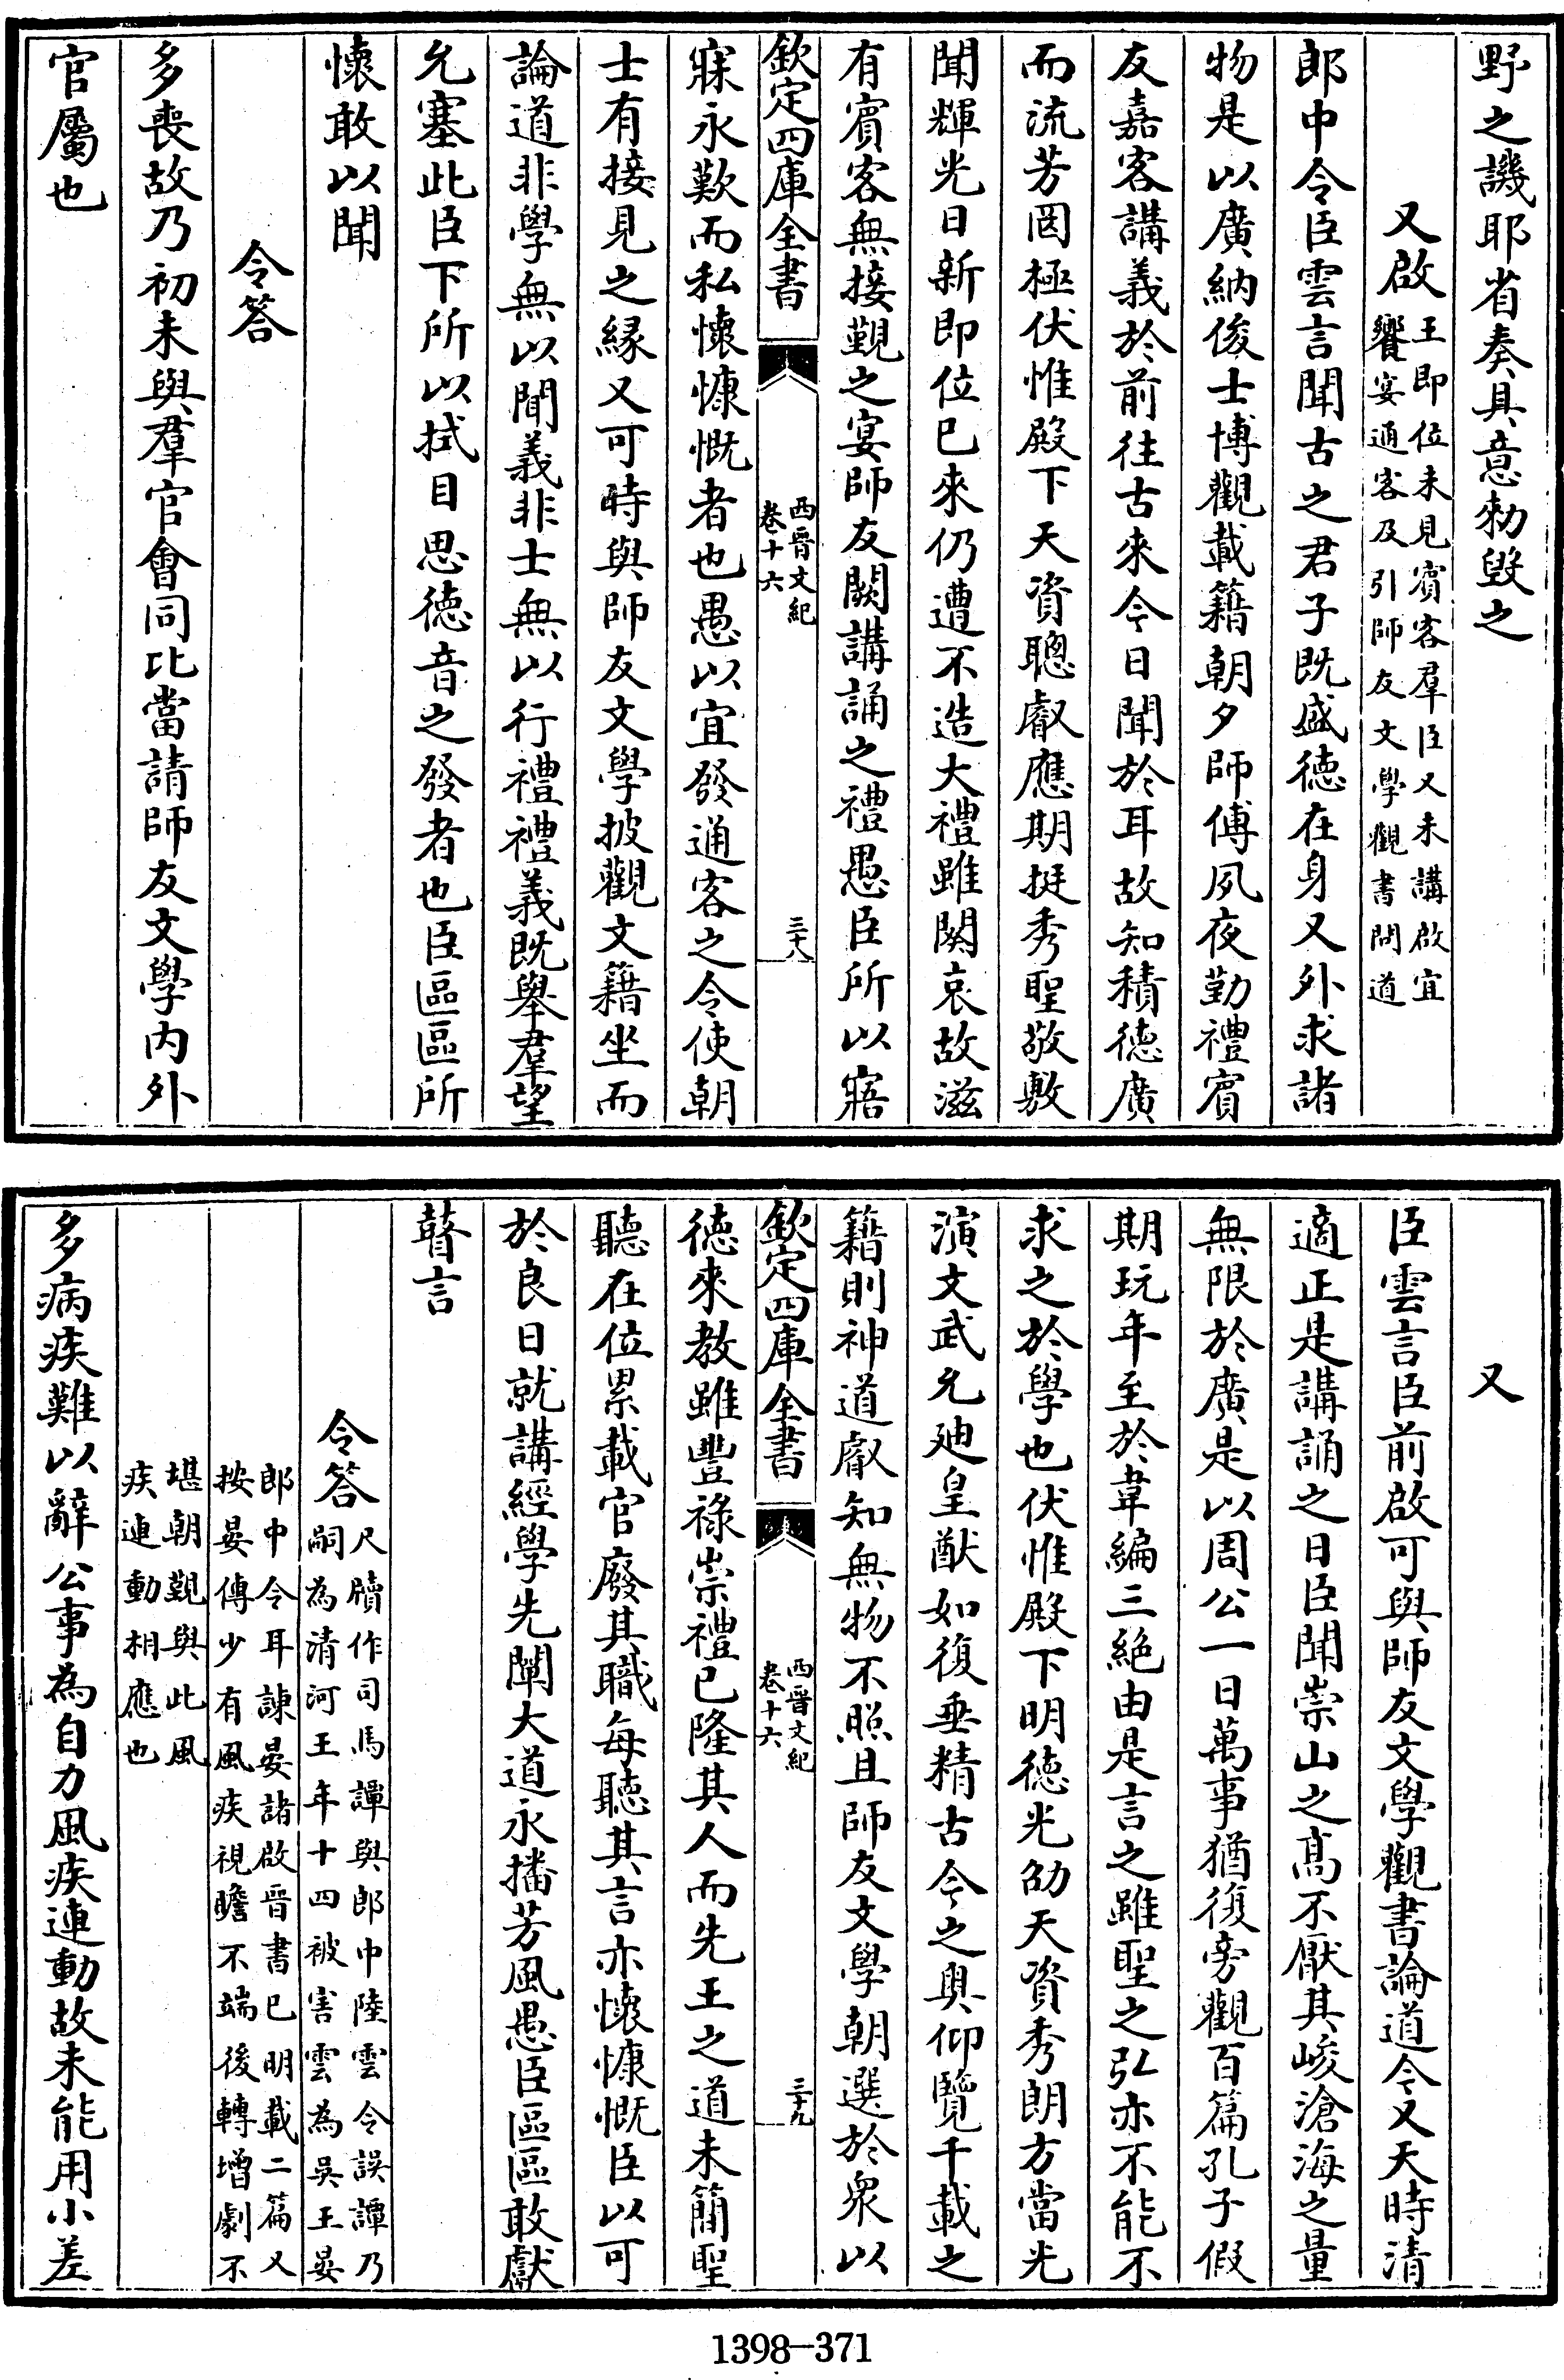 野之譏耶省奏具意勑毀之
又啟王即位未見賓客羣臣又未講啟宜
饗宴通客及引師友文學觀書問道
郎中令臣雲言聞古之君子既盛德在身又外求諸
物是以廣納俊士博觀載籍朝夕師傅夙夜勤禮賓
友嘉客講義於前往古來今日聞於耳故知積德廣
而流芳罔極伏惟殿下天資聰叡應期挺秀聖敬敷
聞輝光日新即位已來仍遭不造大禮雖闋哀故滋
有賓客無接覿之宴師友闕講誦之禮愚臣所以寤
欽定四庫全書
西晉文紀
卷十六
三十八
寐永歎而私懷慷慨者也愚以宜發通客之令使朝
士有接見之緣又可時與師友文學披觀文籍坐而
論道非學無以聞義非士無以行禮禮義既舉羣望
允塞此臣下所以拭目思德音之發者也臣區區所
懷敢以聞
令答
多喪故乃初未與羣官會同比當請師友文學內外
官屬也
又
臣雲言臣前啟可與師友文學觀書論道今又天時清
適正是講誦之日臣聞崇山之髙不厭其峻滄海之量
無限於廣是以周公一日萬事猶復旁觀百篇孔子假
期玩年至於韋編三絕由是言之雖聖之弘亦不能不
求之於學也伏惟殿下明德光劭天資秀朗方當光
演文武允廸皇猷如復垂精古今之輿仰覽千載之
籍則神道叡知無物不照且師友文學朝選於衆以
欽定四庫全書
西晉文紀
卷十六
三十九
德來教雖豐祿崇禮已隆其人而先王之道未簡聖
聽在位累載官廢其職每聽其言亦懷慷慨臣以可
於良日就講經學先闡大道永播芳風愚臣區區敢獻
瞽言
令答尺牘作司馬譚與郎中陸雲令誤譚乃
嗣為清河王年十四被害雲為吳王晏
郎中令耳諫晏諸啟晉書已明載二篇又
按晏傳少有風疾視瞻不端後轉增劇不
堪朝覲與此風
疾連動相應也
多病疾難以辭公事為自力風疾連動故未能用小差
1398-371